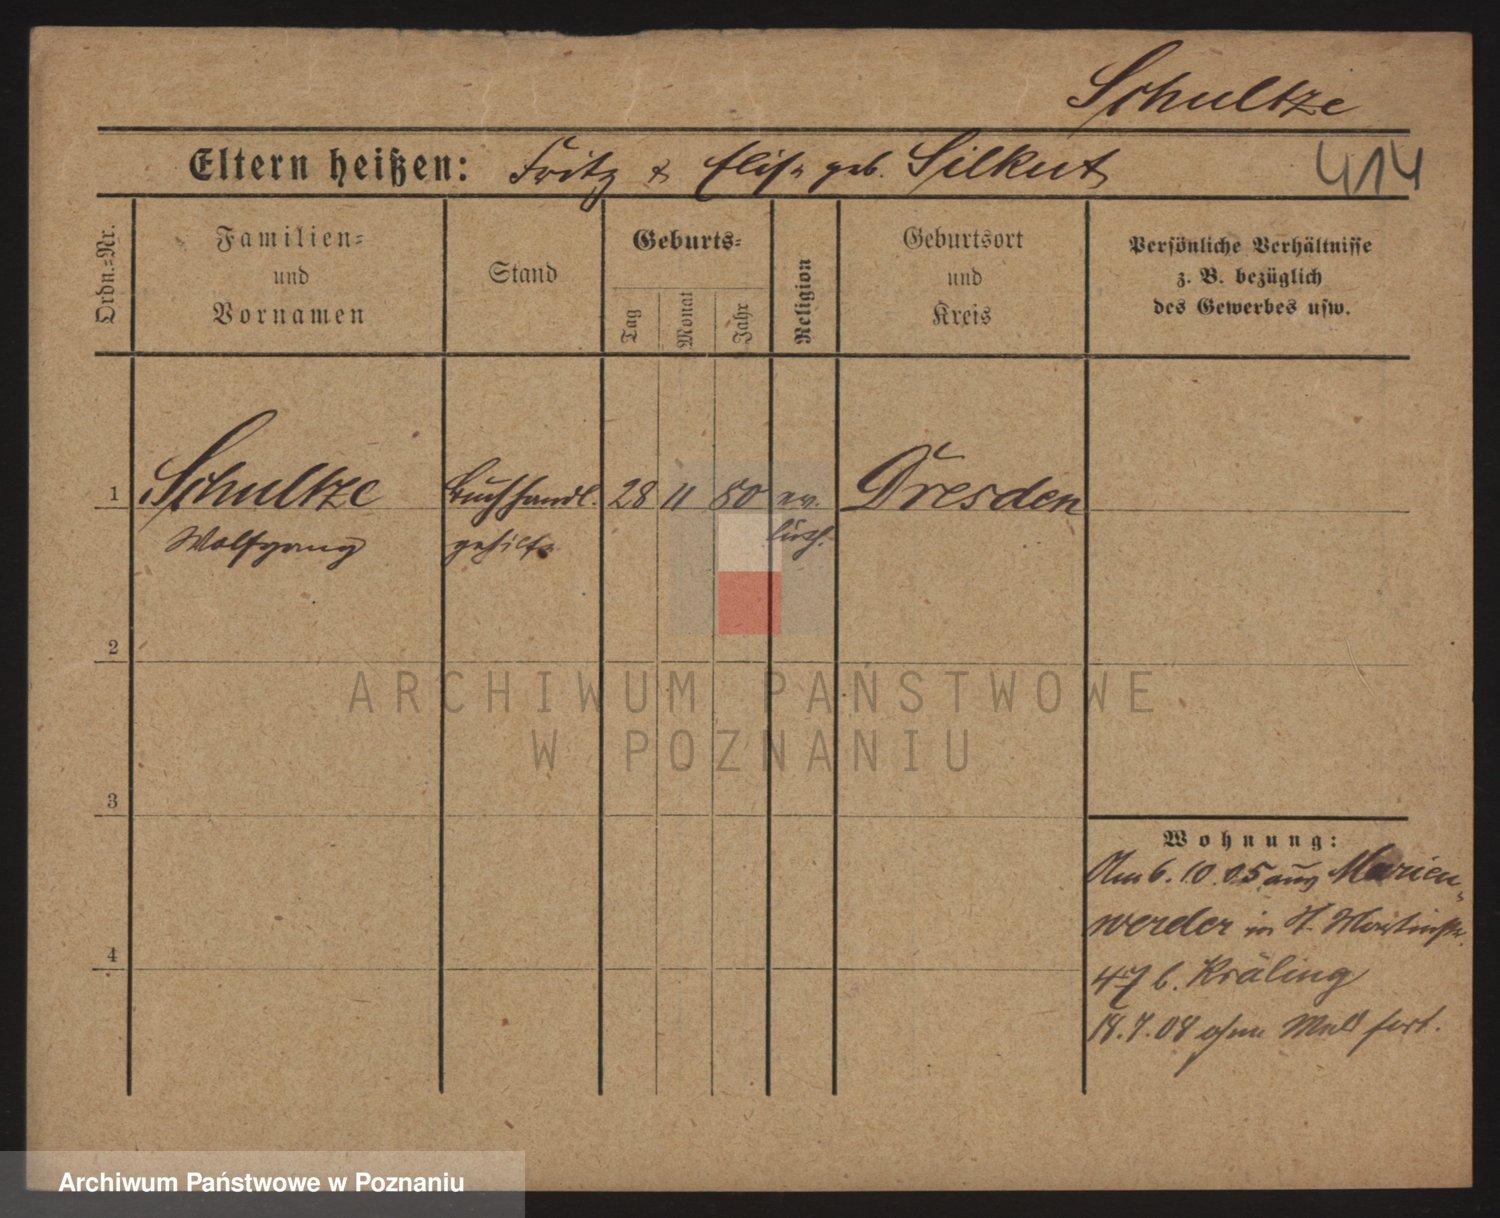 Schultze
Eltern heißen: Fritz & Elise geb. Silkut
414
Ordn.-Nr.
Familien-
und
Vornamen
Stand
Geburts-
Tag
Monat
Jahr
Religion
Geburtsort
und
Kreis
Persönliche Verhältnisse
z. B. bezüglich
des Gewerbes usw.
1 Schultze Buchhandl. 28 11 80 ev. Dresden
Wolfgang gehilfe luth.
2
ARCHIWUM PAŃSTWOWE
W POZNANIU
3
Wohnung:
Am 6. 10. 05 aus Marien-
werder in St. Martinstr.
4
47 b. Kräling
18. 7. 08 ohne Meld fort.
Archiwum Państwowe w Poznaniu